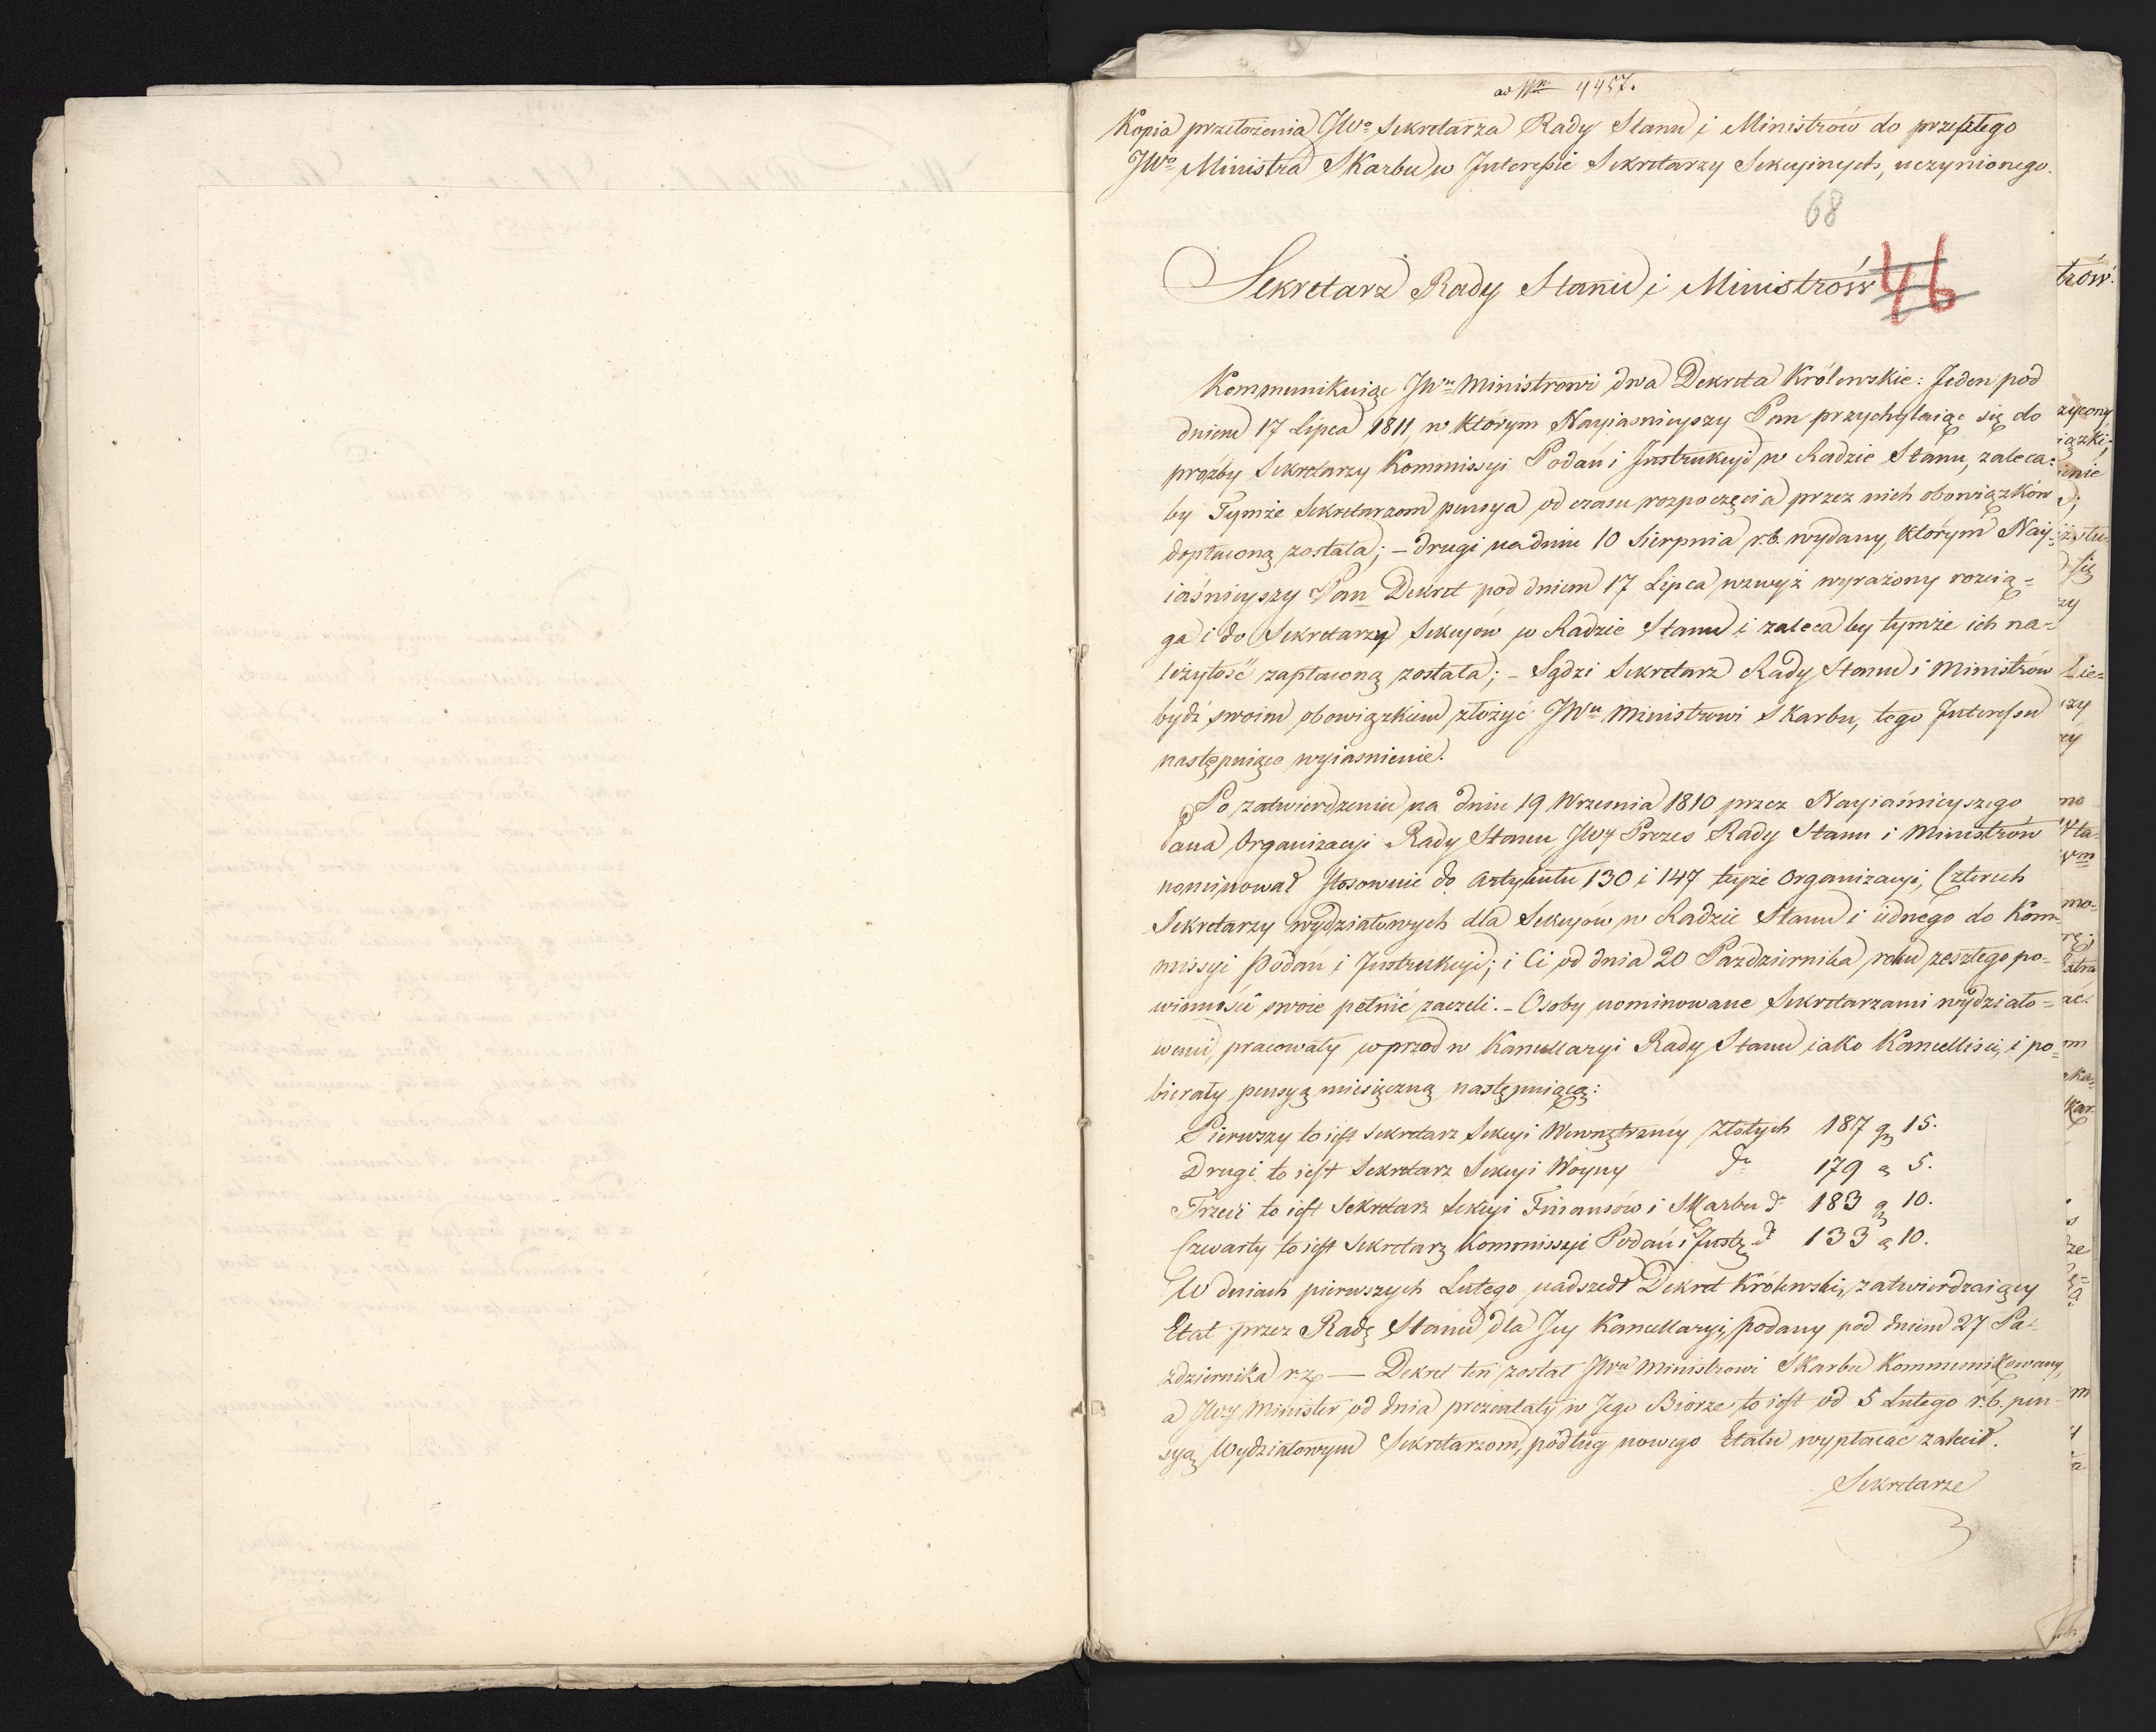 ad Nrm 4457.
Kopia przełożenia JWo Sekretarza Rady Stanu i Ministrów do przeszłego
JWo Ministra Skarbu w Interessie Sekretarzy Sekcyinych, uczynionego.
68
Sekretarz Rady Stanu i Ministrów
46
Kommunikuiąc JWu Ministrowi dwa Dekreta Królewskie: Jeden pod
dniem 17 Lipca 1811, w którym Nayiasnieyszy Pan przychylaiąc się do
prożby Sekretarzy Kommissyi Podań i Instrukcyi w Radzie Stanu, zaleca:
by Tymże Sekretarzom pensya od czasu rozpoczęcia przez nich obowiązków
dopłaconą została; – drugi na dniu 10 Sierpnia r.b. wydany, którym Nay-
iaśnieyszy Pan Dekret pod dniem 17 Lipca wzwyż wyrażony rozcią-
ga i do Sekretarzy Sekcyow w Radzie Stanu i zaleca by tymże ich na-
leżytość zapłaconą została; – Sądzi Sekretarz Rady Stanu i Ministrów
bydź swoim obowiązkiem złożyć JWu Ministrowi Skarbu, tego Interessu
następuiące wyiasnienie.
Po zatwierdzeniu na dniu 19 Wrzesnia 1810 przez Nayiaśnieyszego
Pana Organizacyi Rady Stanu JWy Prezes Rady Stanu i Ministrów
nominował stosownie do Artykułu 130 i 147 teyże Organizacyi, Czterech
Sekretarzy wydziałowych dla Sekcyów w Radzie Stanu i iednego do Kom-
missyi Podań i Instrukcyi; i Ci od dnia 20 Pazdziernika roku zeszłego po-
winności swoie pełnić zaczeli. – Osoby nominowane Sekretarzami wydziało-
wemi, pracowały wprzod w Kancellaryi Rady Stanu iako Kancelliści, i po-
bierały pensyą miesięczną następuiącą:
Pierwszy to iest Sekretarz Sekcyi Wewnętrzney Złotych 187 g 15.
Drugi to iest Sekretarz Sekcyi Woyny do 179 g 5.
Trzeci to iest Sekretarz Sekcyi Finansów i Skarbu do 183 g 10.
Czwarty to iest Sekretarz Kommissyi Podań i Instr. do 133 g 10.
W dniach pierwszych Lutego nadszedł Dekret Królewski, zatwierdzaiący
Etat przez Radę Stanu dla Jey Kancellaryi, podany pod dniem 27 Pa-
zdziernika r.z. — Dekret ten został JWu Ministrowi Skarbu Kommunikowany,
a JWy Minister od dnia prezentaty w Jego Biorze to iest od 5 Lutego r.b. pen-
syą Wydziałowym Sekretarzom, podług nowego Etatu wypłacać zalecił.
Sekretarze